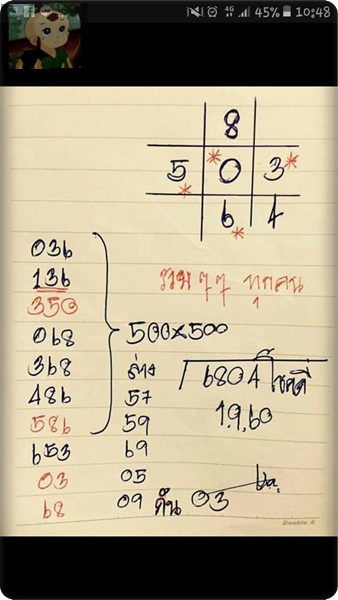 4G 45% 10:48
8
5 * 0 3 *
*
6 4
*
036
136
350
068
368
486
586
653
03
68
รวย ๆๆ ทุกคน
500x500
ล่าง
57
59
69
05
09 ดัน 03
6804 โชคดี
1,9,60
Double A